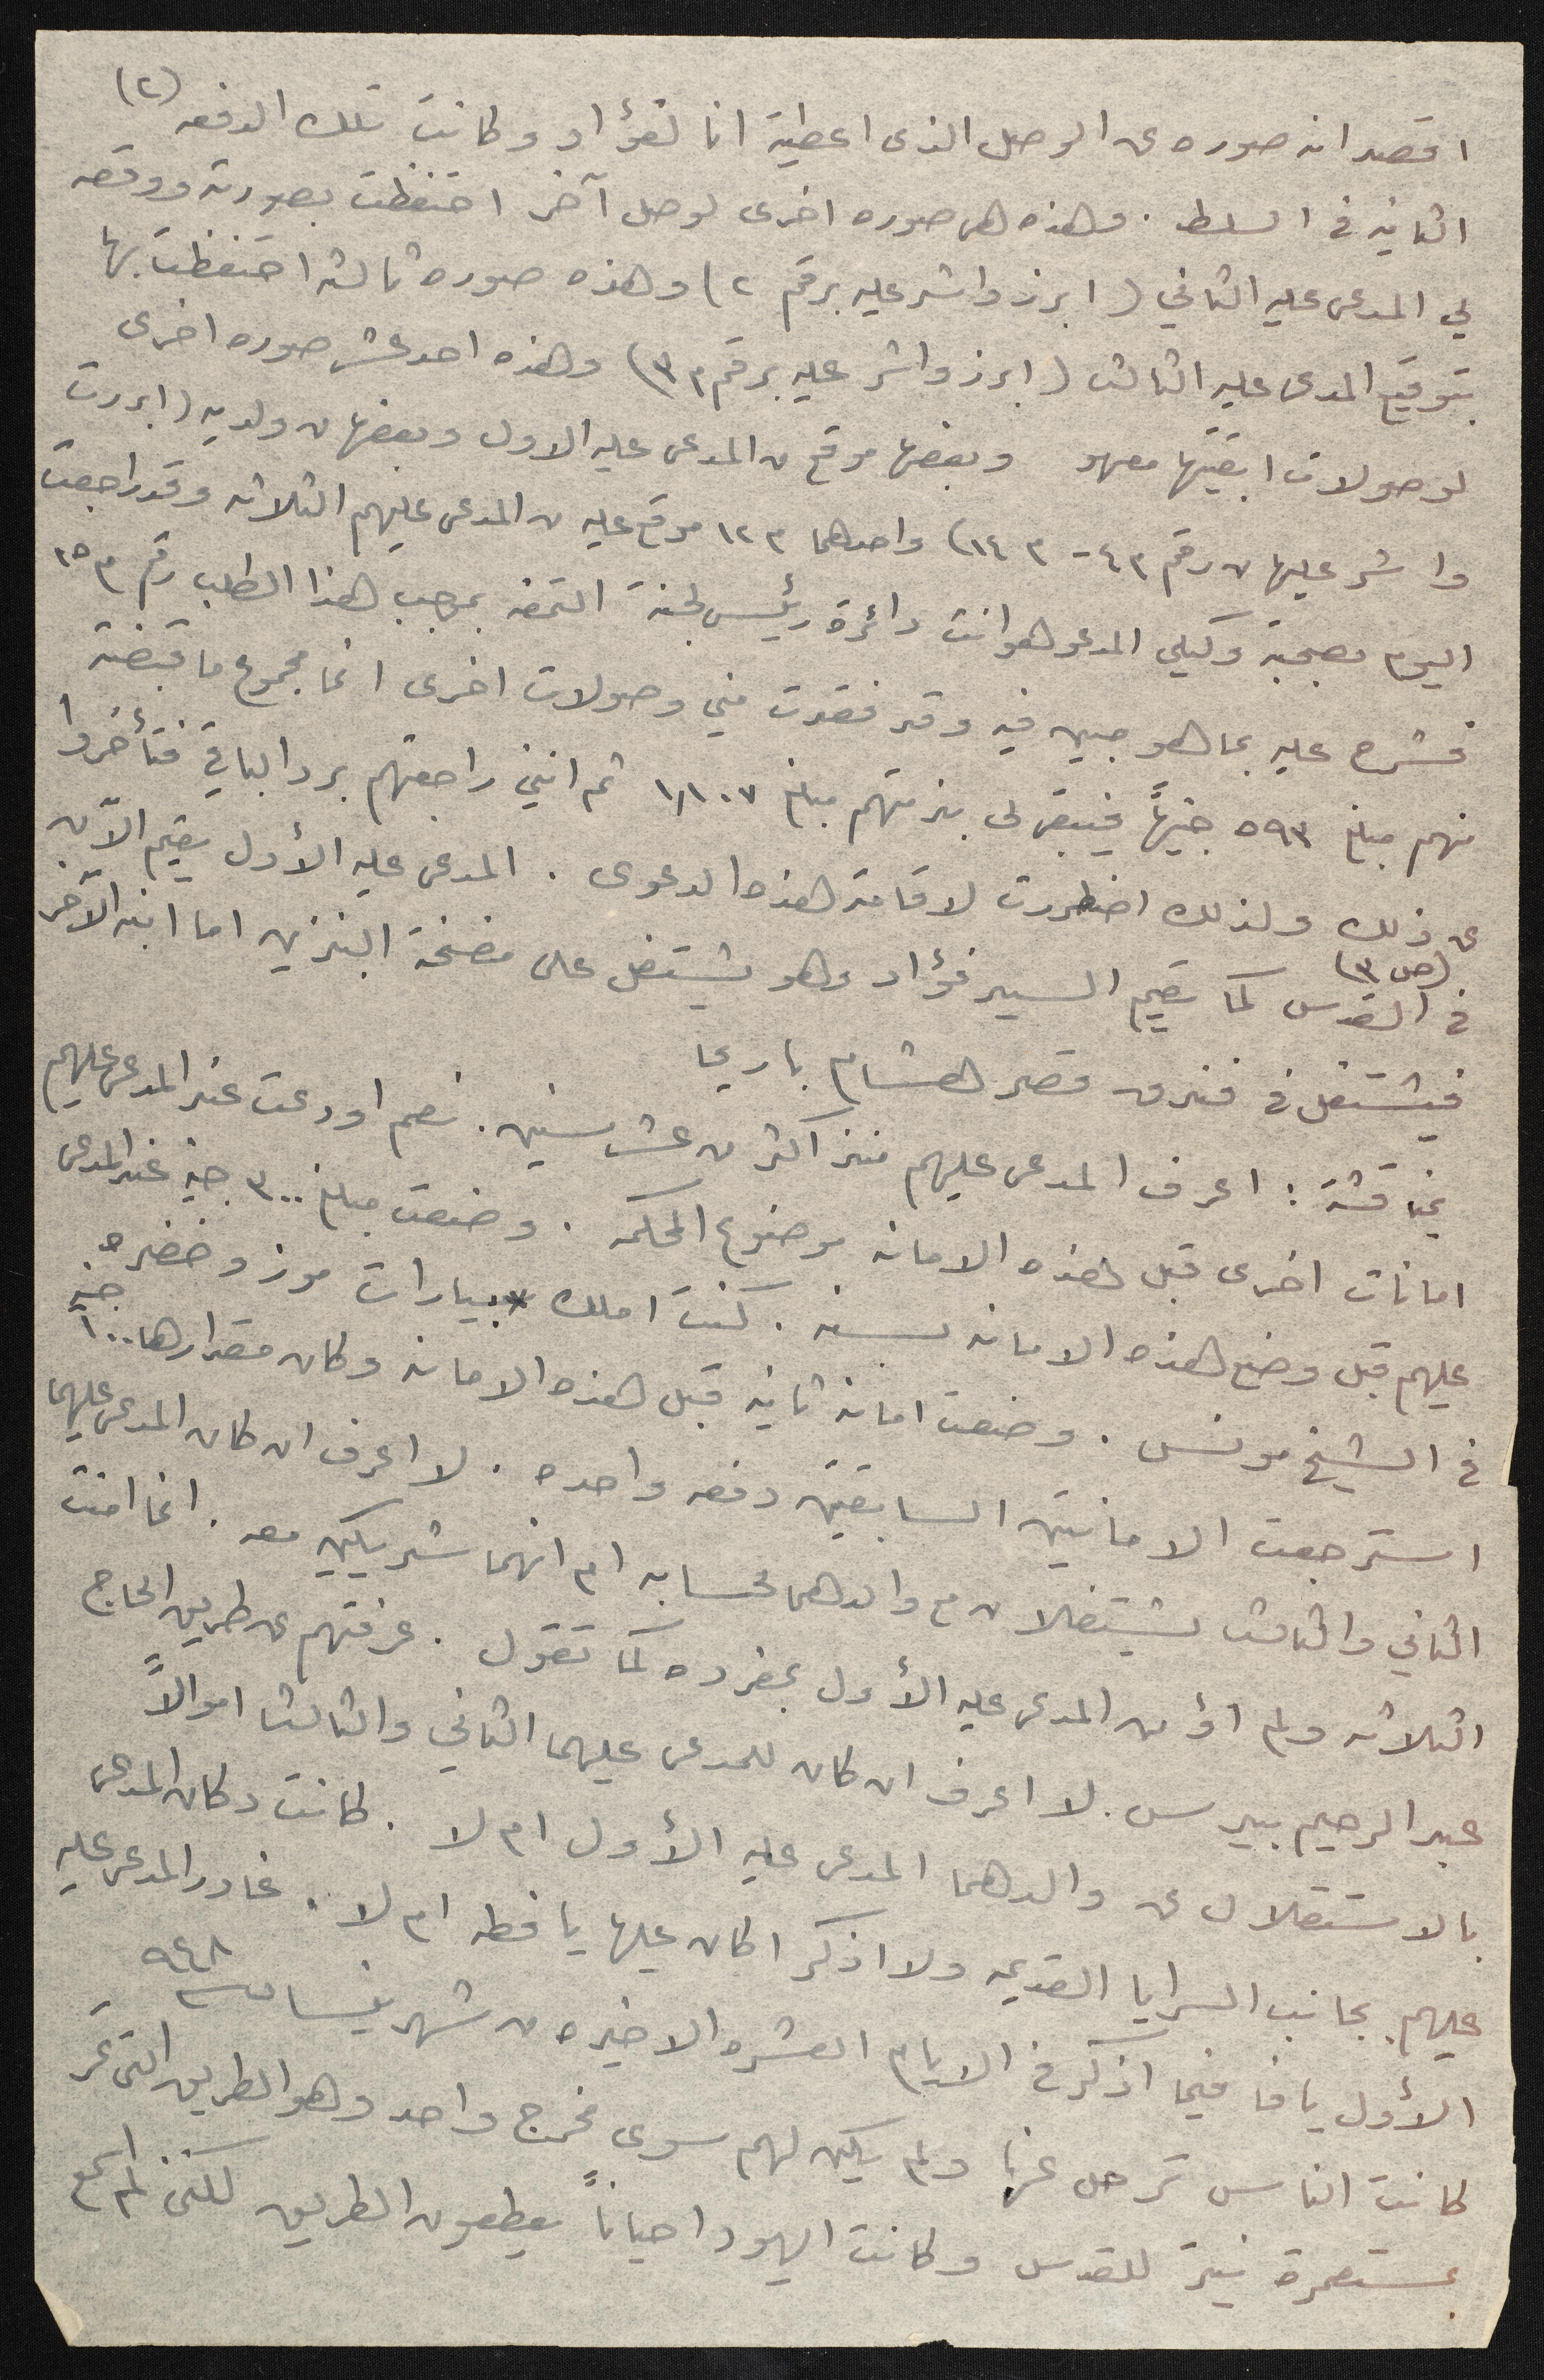 (٢)
اقصد انه صوره عن الوصل الذى اعطيته انا لفؤاد وكانت تلك الدفعه
الثانيه في السلط . وهذه هى صوره اخرى لوصل آخر احتفظت بصورته ووقعه
لي المدعى عليه الثاني (ابرز واشر عليه برقم ٢) وهذه صوره ثالثه احتفظت بها
بتوقيع المدعى عليه الثالث (ابرز واشر عليه برقم م ٣) وهذه احد عشر صوره اخرى
لوصولات ابقيتها معهم وبعضها موقع من المدعى عليه الاول وبعضها من ولديه (ابرزت
واشر عليها من رقم م ٤ - م ١٤) واحدهما م ١٢ موقع عليه من المدعى عليهم الثلاثه وقد راجعت
اليوم بصحبة وكيلي المدعو دائرة رئيس لجنة التمغه بموجب هذا الطلب رقم م ١٥
فشرح عليه بما هو مبين فيه وقد فقدت مني وصولات اخرى انما مجموع ما قبضته
منهم مبلغ ٥٩٣ جنيهاً فيبقى لى بذمتهم مبلغ ١١٠٧ ثم انني راجعتهم برد الباقي فتأخروا
عن ذلك ولذلك اضطررت لاقامة هذه الدعوى . المدعى عليه الأول يقيم الآن
(ص ٣)
في القدس كما يقيم السيد فؤاد وهو يشتغل على مضخة البنزين اما ابنه الآخر
فيشتغل في فندق قصر هشام باريحا
بمناقشته : اعرف المدعى عليهم منذ اكثر من عشر سنين . نعم اودعت عند المدعى عليهم
امانات اخرى قبل هذه الامانه موضوع المحكمه . وضعت مبلغ ٣٠٠ جنيه عند المدعى
عليهم قبل وضع هذه الامانه بسنه . كنت املك بيارات موز وخضره
في الشيخ مونس . وضعت امانه ثانيه قبل هذه الامانه وكان مقدارها ١٠٠ جنيه
استرجعت الامانتين السابقتين دفعه واحده . لا اعرف ان كان المدعى عليهما
الثاني والثالث يشتغلان مع والدهما لحسابه ام انهما شريكين معه . انما امنت
الثلاثه ولم اؤمن المدعى عليه الأول بمفرده كما تقول . عرفتهم عن طريق الحاج
عبد الرحيم بيدس . لا اعرف ان كان للمدعى عليهما الثاني والثالث اموالاً
بالاستقلال عن والدهما المدعى عليه الأول ام لا . كانت دكان المدعى
عليهم بجانب السرايا القديمه ولا اذكر اكان عليها يافطه ام لا . غادر المدعى عليه
الأول يافا فيما اذكر في الايام العشره الاخيره من شهر نيسان سنة ٩٤٨
كانت الناس ترحل عنها ولم يكن لهم سوى مخرج واحد وهو الطريق التى تمر
بمستعمرة نيتر للقدس وكانت اليهود احياناً يقطعون الطريق لكنى لم اسمع